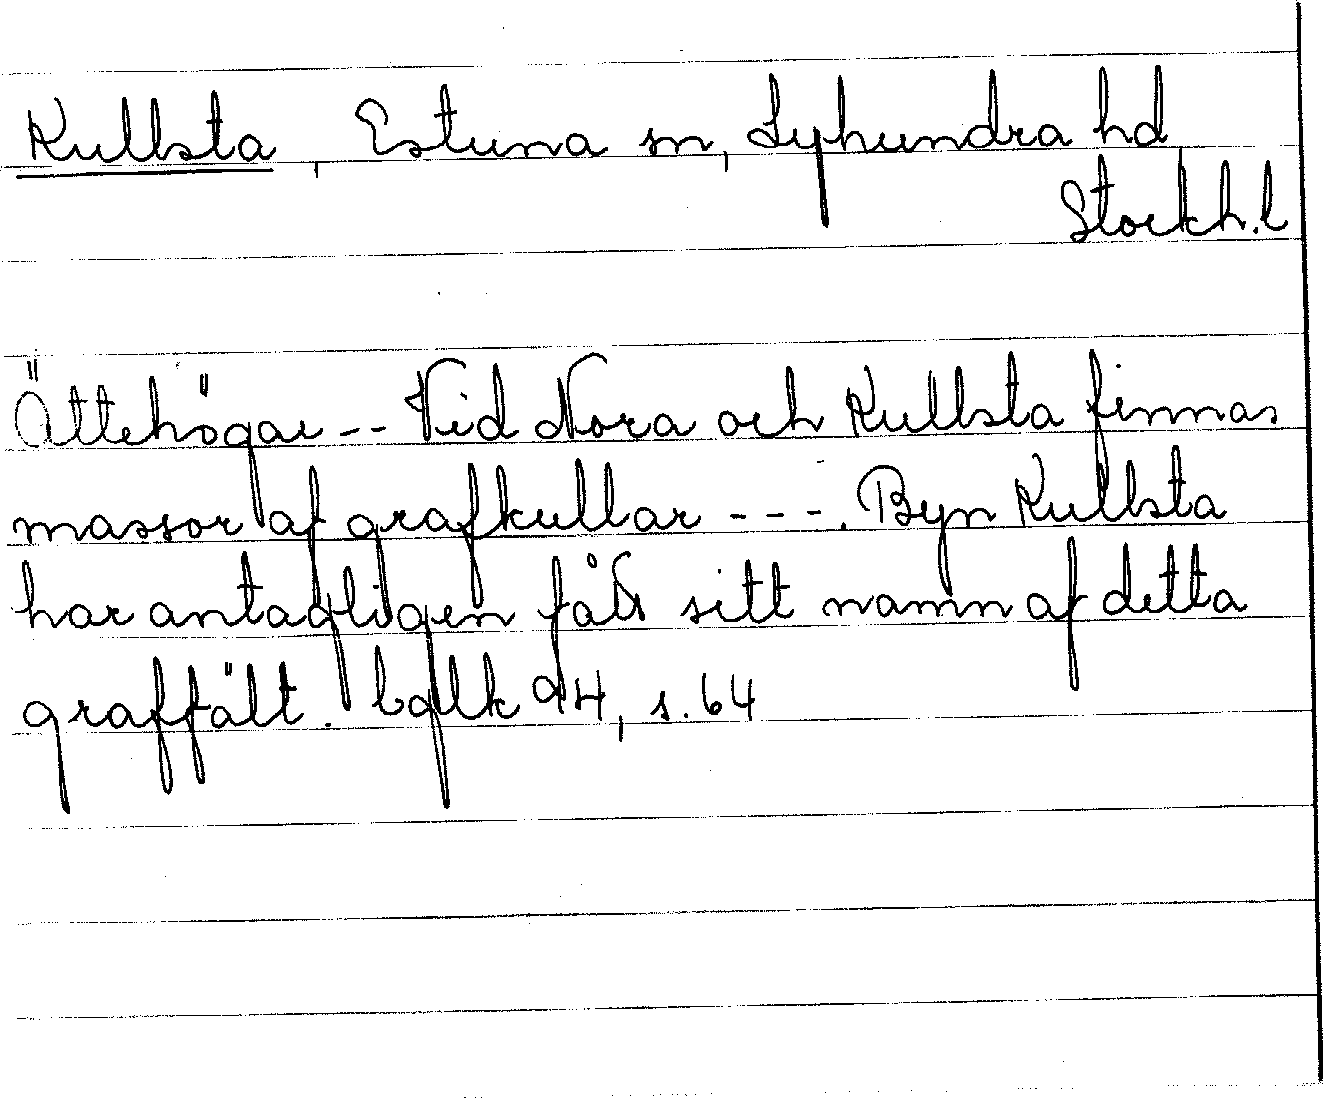 Kullsta, Estuna sn, Lyhundra hd
Stockh.l
Ättehögar -- Vid Nora och Kullsta finnas
massor af grafkullar ---. Byn Kullsta
har antagligen fått sitt namn af detta
graffält. bglk 94, s. 64